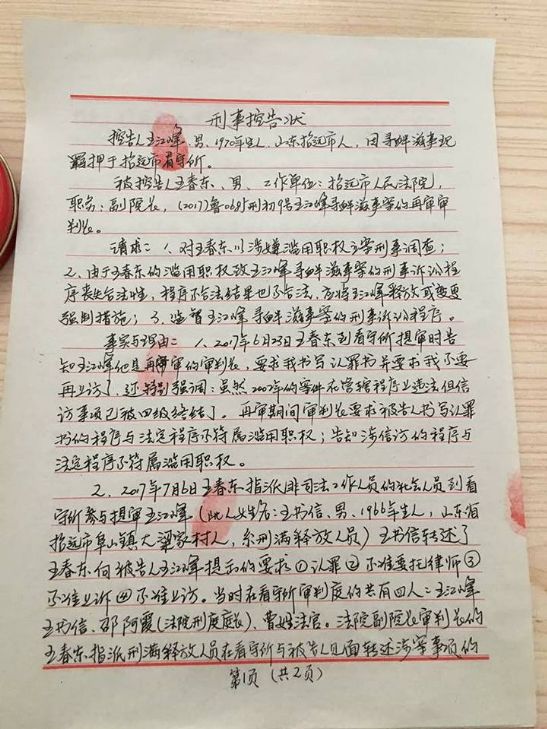 刑事控告状
控告人王江峰、男、1970年生人,山东招远市人,因寻衅滋事现
羁押于招远市看守所。
被控告人王春东、男、工作单位:招远市人民法院,
职务:副院长,(2017)鲁0685刑初 号王江峰寻衅滋事案的再审审
判长。
请求:1、对王春东涉嫌滥用职权立案刑事调查;
2、由于王春东的滥用职权致王江峰寻衅滋事案的刑事诉讼程
序丧失合法性,程序不合法结果也不合法,应将王江峰释放或变更
强制措施;3、监督王江峰寻衅滋事案的刑事诉讼程序。
事实与理由:1、2017年6月23日王春东到看守所提审时告
知王江峰他是再审的审判长,要求我书写认罪书并要求我不要
再上访了,还特别强调:虽然2007年的案件在管辖程序上违法但信
访事项已被四级终结了。再审期间审判长要求被告人书写认罪
书的程序与法定程序不符属滥用职权;告知涉信访的程序与
法定程序不符属滥用职权。
2、2017年7月6日王春东指派非司法工作人员的社会人员到看
守所参与提审王江峰(此人姓名:王书信、男、1966年生人,山东省
招远市阜山镇大梁家村人,系刑满释放人员)王书信转述了
王春东向被告人王江峰提示的要求①认罪②不准委托律师③
不准上诉④不准上访。当时在看守所审判庭的共有四人:王江峰
王书信、邵阿霞(法院刑庭庭长)、曹姓法官。法院副院长审判长的
王春东指派刑满释放人员在看守所与被告人见面转述涉案事项的
第1页(共2页)